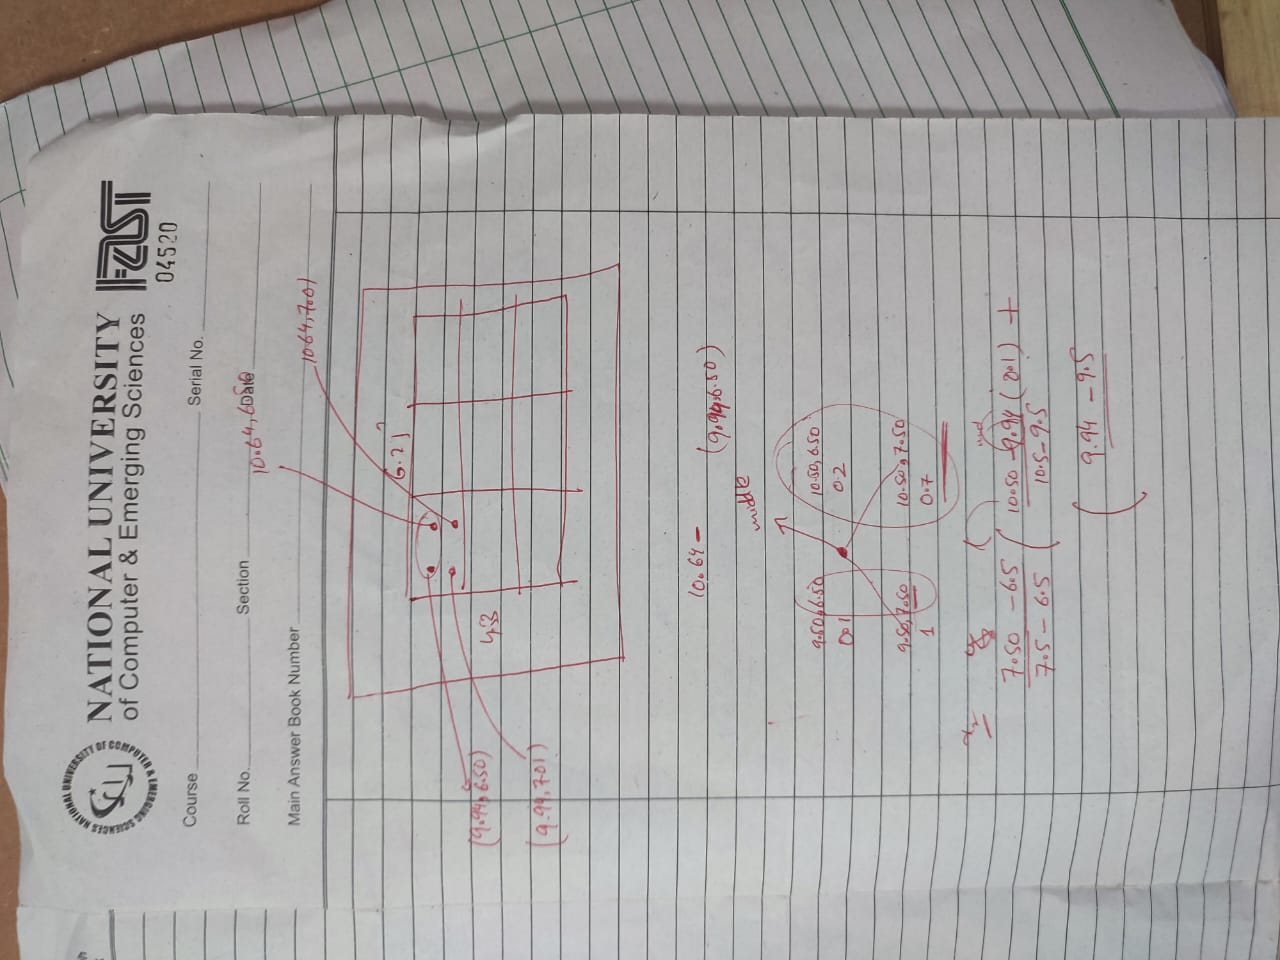 NATIONAL UNIVERSITY
of Computer & Emerging Sciences
FAST
04520
NATIONAL UNIVERSITY OF COMPUTER & EMERGING SCIENCES
Course Serial No.
Roll No. Section Date
10.64,6.50
Main Answer Book Number
10.64,7.01
6.21
4.3
(9.94,6.50)
(9.94,7.01)
10.64 -
(9.94,6.50)
middle
9.50,6.50 10.50,6.50
0.1 0.2
9.50,7.50 10.50,7.50
1 0.7
7.50 - 6.5 ( 10.50 - 9.94 (0.1) +
7.5 - 6.5 10.5 - 9.5
( 9.94 - 9.5